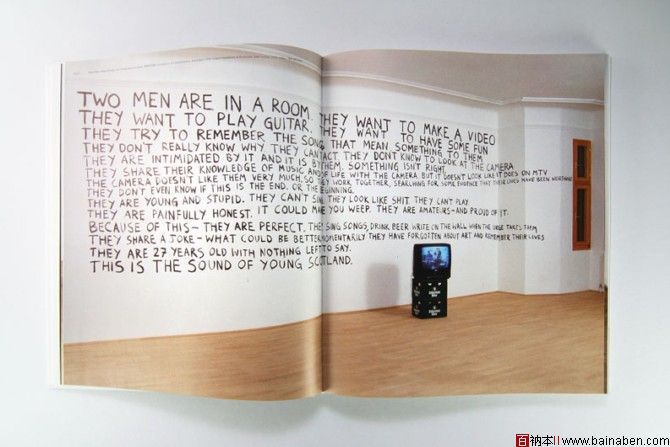 TWO MEN ARE IN A ROOM. THEY WANT TO MAKE A VIDEO
THEY WANT TO PLAY GUITAR. THEY WANT TO HAVE SOME FUN
THEY TRY TO REMEMBER THE SONG THAT MEAN SOMETHING TO THEM
THEY DON'T REALLY KNOW WHY THEY CAN'T ACT. THEY DON'T KNOW TO LOOK AT THE CAMERA
THEY ARE INTIMIDATED BY IT AND IT IS BY THEM. SOMETHING ISN'T RIGHT
THEY SHARE THEIR KNOWLEDGE OF MUSIC AND OF LIFE WITH THE CAMERA BUT IT DOESN'T LOOK LIKE IT DOES ON MTV.
THE CAMERA DOESN'T LIKE THEM VERY MUCH, SO THEY WORK TOGETHER, SEARCHING FOR SOME EVIDENCE THAT THEIR LIVES HAVE BEEN WORTHWHILE
THEY DON'T EVEN KNOW IF THIS IS THE END, OR THE BEGINNING.
THEY ARE YOUNG AND STUPID. THEY CAN'T SING. THEY LOOK LIKE SHIT. THEY CAN'T PLAY
THEY ARE PAINFULLY HONEST. IT COULD MAKE YOU WEEP. THEY ARE AMATEURS-AND PROUD OF IT.
BECAUSE OF THIS- THEY ARE PERFECT. THEY SING SONGS, DRINK BEER WRITE ON THE WALL WHEN THE URGE TAKES THEM
THEY SHARE A JOKE- WHAT COULD BE BETTER, MOMENTARILY THEY HAVE FORGOTTEN ABOUT ART AND REMEMBER THEIR LIVES
THEY ARE 27 YEARS OLD WITH NOTHING LEFT TO SAY.
THIS IS THE SOUND OF YOUNG SCOTLAND.
百衲本 www.bainaben.com